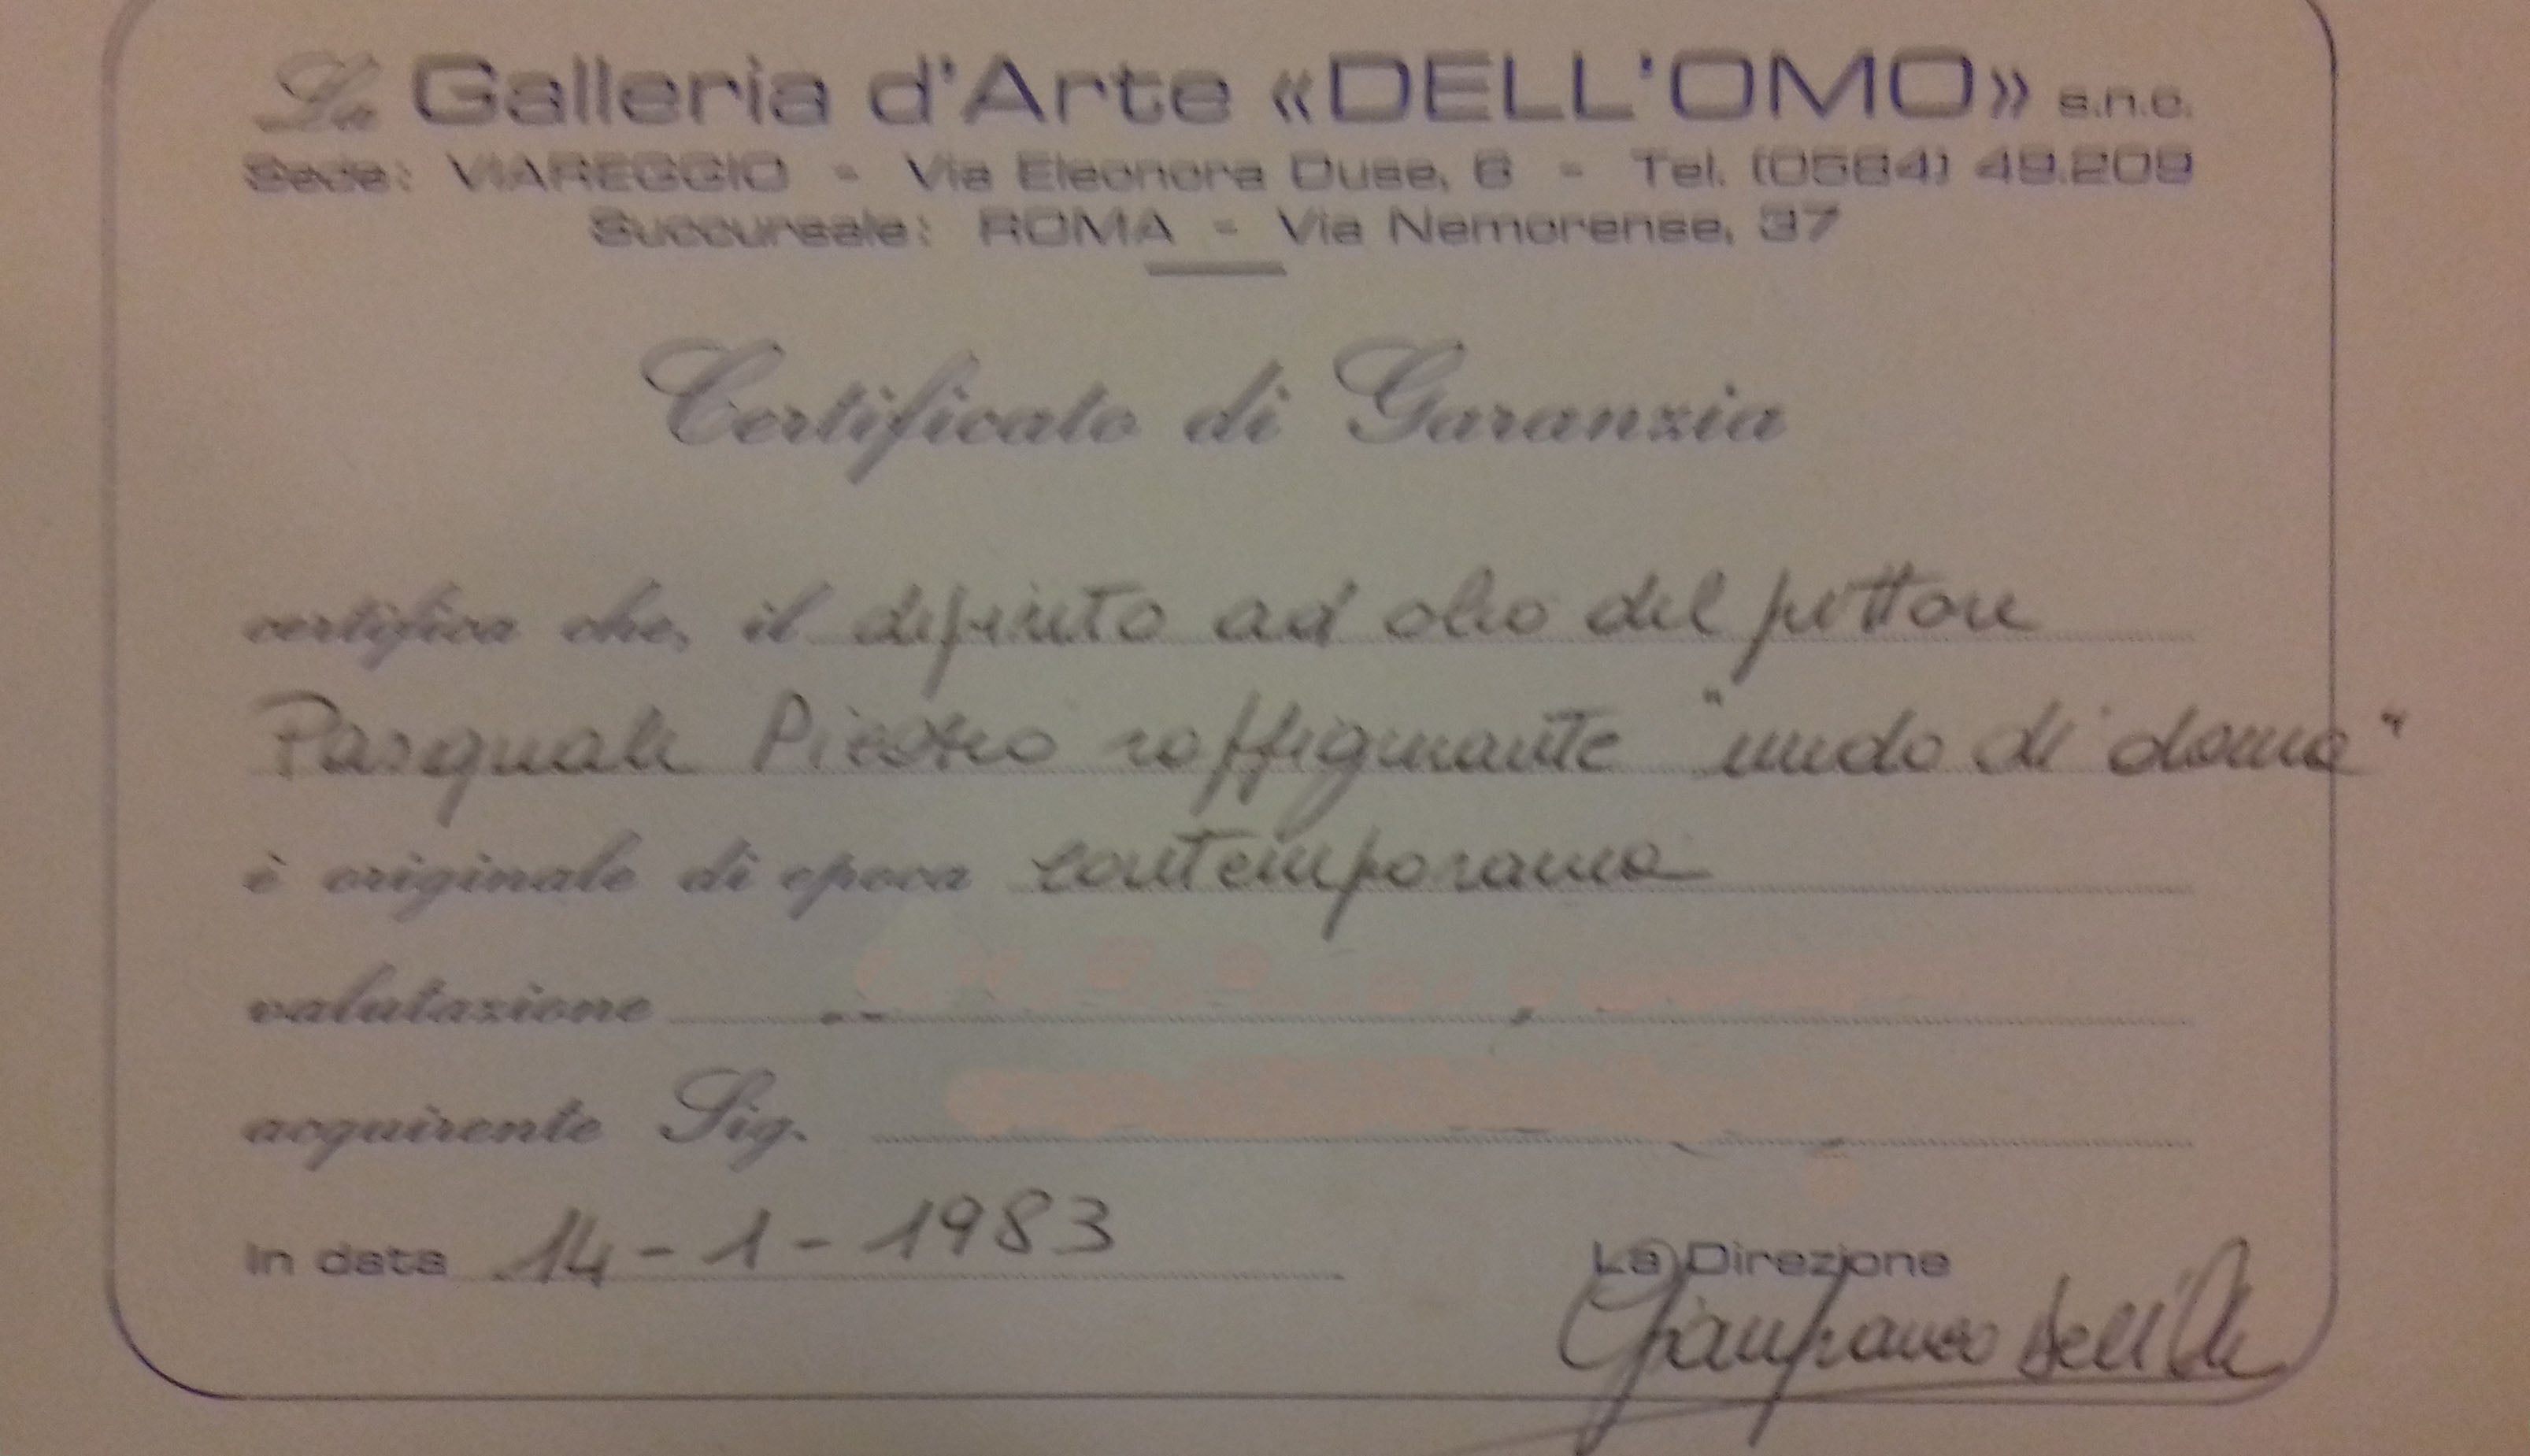 La Galleria d'Arte «DELL'OMO» s.n.c.
Sede: VIAREGGIO - Via Eleonora Duse, 6 - Tel. (0584) 49.209
Succursale: ROMA - Via Nemorense, 37
Certificato di Garanzia
certifica che, il dipinto ad olio del pittore
Pasquale raffigurante "nudo di donna"
è originale di epoca contemporanea
valutazione
acquirente Sig.
In data 14-1-1983
La Direzione
Gianfranco Dell'